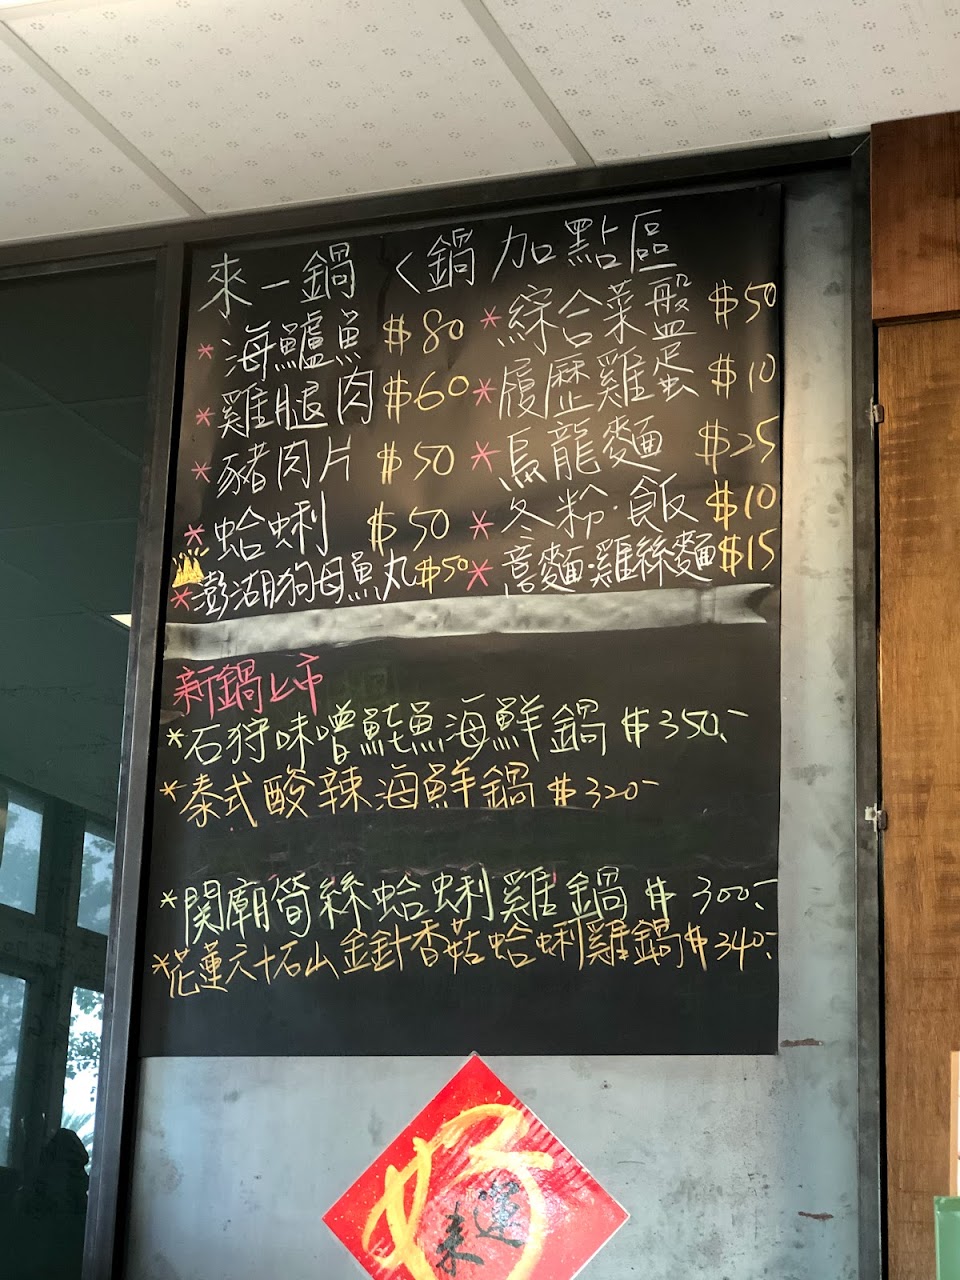 來一鍋〈鍋 加點區
*海鱸魚 $80
*雞腿肉 $60
*豬肉片 $50
*蛤蜊 $50
*澎湖狗母魚丸 $50
*綜合菜盤 $50
*履歷雞蛋 $10
*烏龍麵 $25
*冬粉·飯 $10
*意麵·雞絲麵 $15
新鍋上市
*石狩味噌鮭魚海鮮鍋 $350.-
*泰式酸辣海鮮鍋 $320-
*関廟筍絲蛤蜊雞鍋 $300.-
*花蓮六十石山金針香菇蛤蜊雞鍋 $340.-
好
運
來